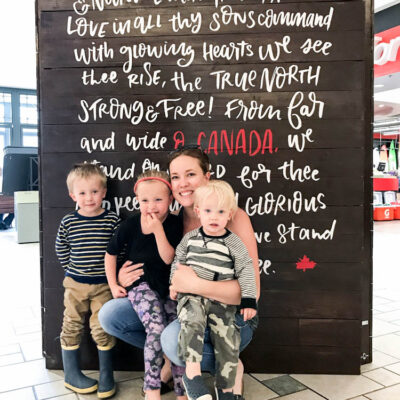 LOVE in all thy SONS command
with glowing Hearts we see
thee RISE, the TRUE NORTH
STRONG & FREE! FROM far
and wide O CANADA, we
STAND ON for thee
GLORIOUS
we STAND
ee.